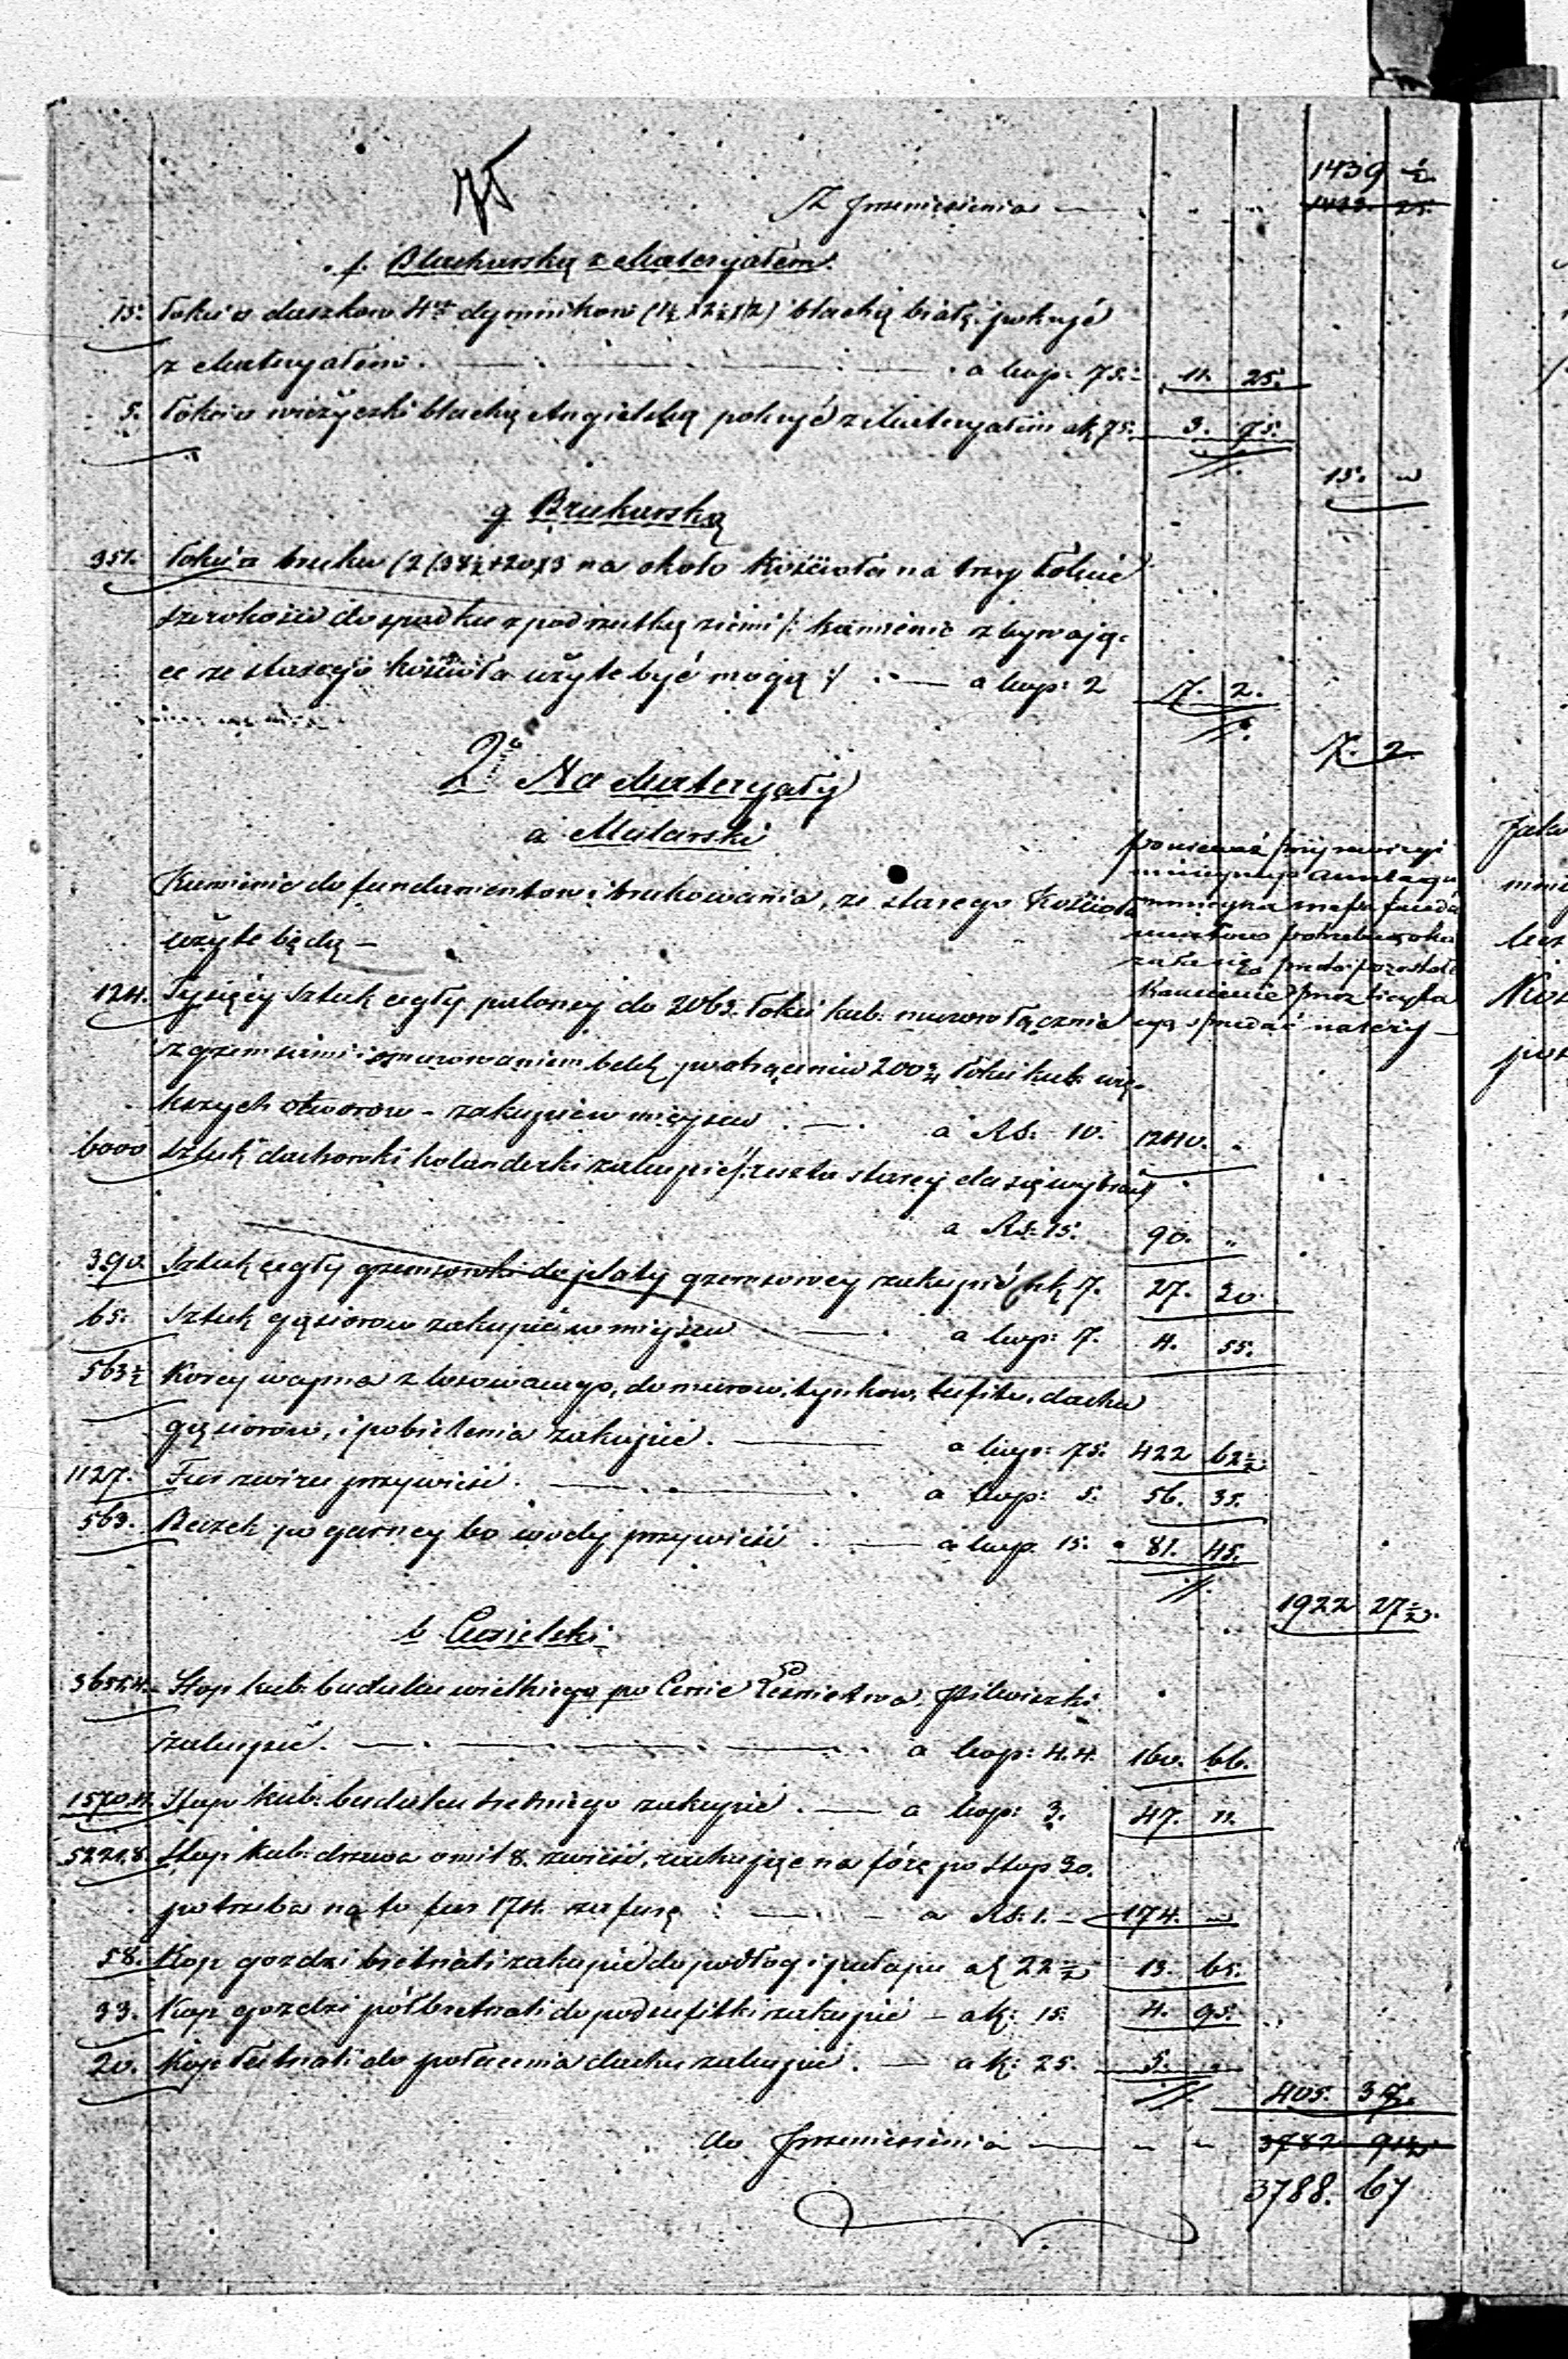 75
1439 ½
Z przeniesienia — " " 1433. 25.
f. Blacharską z Materyałem.
15. Łokci □ daszków 4ch dymników (1½ × 2½ × 2) blachą białą pokryć
z Materyałem. — a kop: 75. 11. 25.
5. Łokci □ wieżyczki blachą Angielską pokryć z Materyałem a k. 75. 3. 75.
15. "
g Brukarską
351. Łokci □ bruku (2 (38½ + 20) 3 na około Kościoła na trzy łokcie
szerokości do spadku z podrzutką ziemi /: kamienie zbywają-
ce ze starego kościoła użyte być mogą :/ — a kop: 2 7. 2.
7. 2
2o Na Materyały
a Mularski
Kamienie do fundamentów i brukowania, ze starego Kościoła
użyte będą —
ponieważ przy rewizyi
kamienie przez licyta
cyą sprzedać należy —
124. Tysięcy sztuk cegły paloney do 2063. łokci kub: murów łącznie
z gzemsami i omurowaniem belek, po strąceniu 200¾ łokci kub: wię-
kszych otworów – zakupić w mieyscu — a RS: 10. 1240. "
6000 Sztuk dachówki holenderki zakupić /: reszta starey da się wybrać :/
a RS: 15. 90. "
390. Sztuk cegły gzemsówki do płaty gzemsowey zakupić a k. 7. 27. 30.
65. Sztuk gąsiorów zakupić w mieyscu — a kop: 7. 4. 55.
563½ Korcy wapna zlasowanego, do murów, tynków, sufitu, dachu
gąsiorów, i pobielenia zakupić. — a kop: 75. 422 62½
1127. Fur żwiru przywieść. — a kop: 5. 56. 35.
563. Beczek po garncy 60 wody przywieść — a kop. 15. 81. 45.
1922 27½.
b Ciesielski
3651,4. Stop kub: budulcu wielkiego po Cenie Leśnictwa Pilwiszki
zakupić. — a kop: 4.4. 160. 66.
1570.4. Stop kub: budulcu średniego zakupić. — a kop: 3. 47. 11.
5221,8. Stop kub: drzewa o mil 8. zwieść, rachując na furę po stop 30.
potrzeba na to fur 174. za furę — a RS: 1. — 174. "
58. Kop goździ bretnali zakupić do podłogi i pułapu a k 22½ 13. 65.
33. Kop goździ półbretnali do podsufitki zakupić — a k: 15. 4. 95.
20. Kop łatnali do połacenia dachu zakupić. — a k: 25. 5. "
405. 37.
do przeniesienia — " " 3782 91½
3788. 67